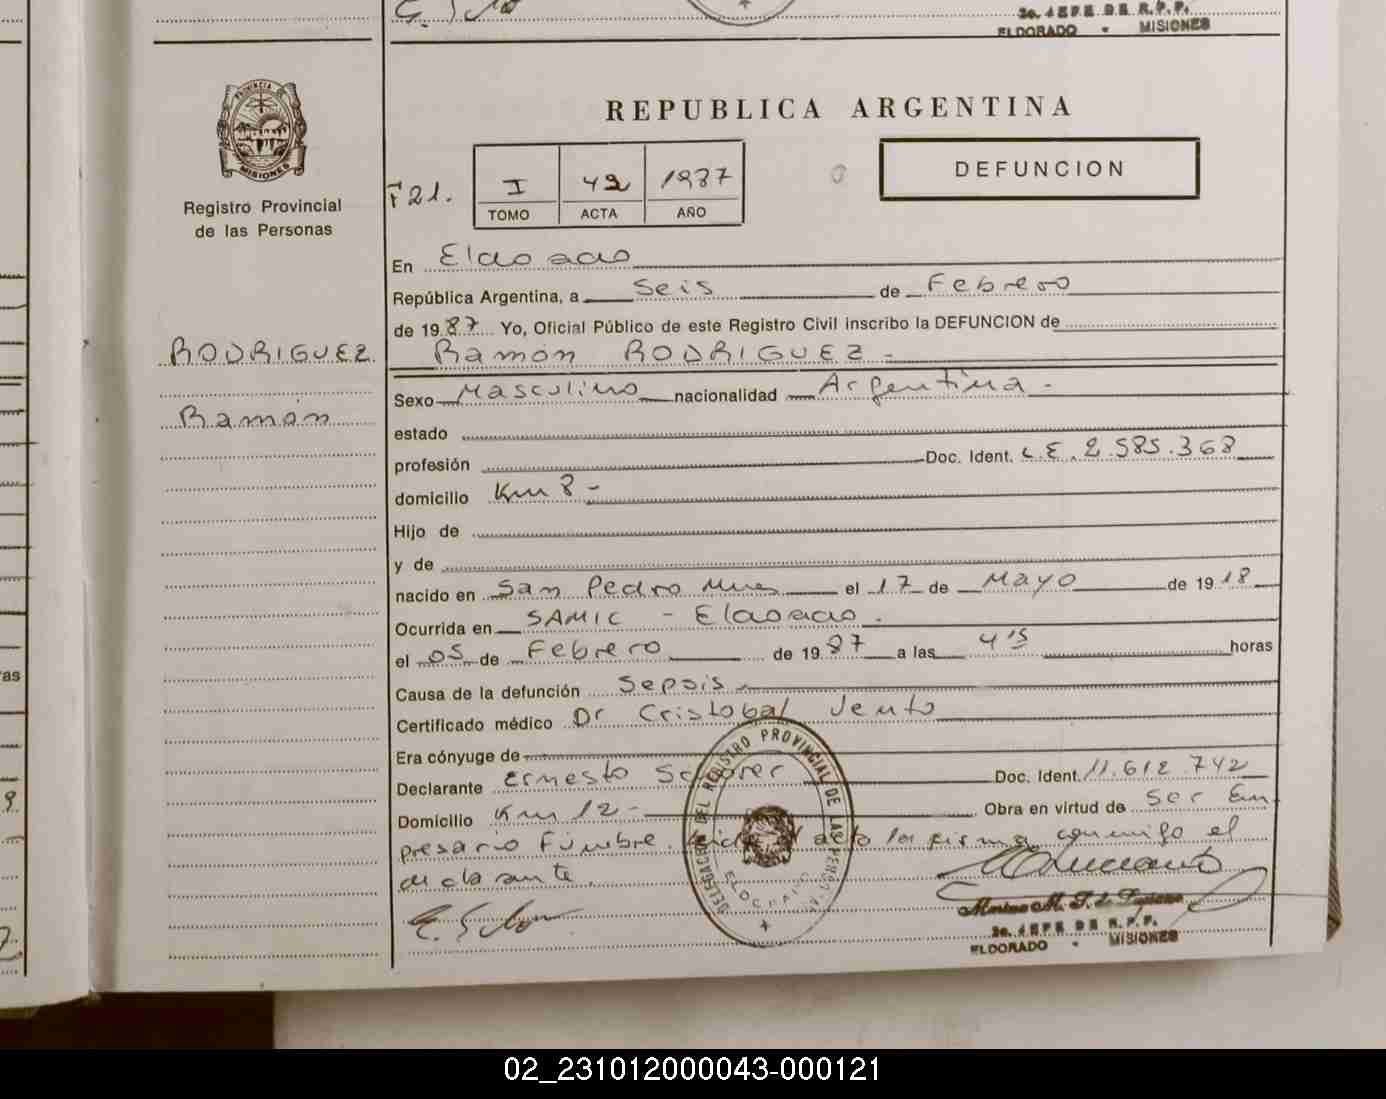 2o. JEFE DE R.P.P.
ELDORADO - MISIONES
PROVINCIA DE
MISIONES
Registro Provincial
de las Personas
REPUBLICA ARGENTINA
DEFUNCION
F21.
I 42 1987
TOMO ACTA AÑO
En Eldorado
República Argentina, a Seis de Febrero
de 1987 Yo, Oficial Público de este Registro Civil inscribo la DEFUNCION de
RODRIGUEZ
Ramón RODRIGUEZ -
Ramón
Sexo Masculino nacionalidad Argentina -
estado
profesión Doc. Ident. L.E. 2.585.368
domicilio Km 8 -
Hijo de
y de
nacido en San Pedro Mnes el 17 de Mayo de 1918
Ocurrida en SAMIC - Eldorado.
el 05 de Febrero de 1987 a las 4'5 horas
Causa de la defunción Sepsis
Certificado médico Dr Cristobal Vento
Era cónyuge de
Declarante Ernesto Doc. Ident. 11.612.742
Domicilio Km 12 - Obra en virtud de Ser Em
presario Fúnebre. Leida el acto la firma conmigo el
declarante.
DELEGACION DEL REGISTRO PROVINCIAL DE LAS PERSONAS
ELDORADO
2o. JEFE DE R.P.P.
ELDORADO - MISIONES
02_231012000043-000121